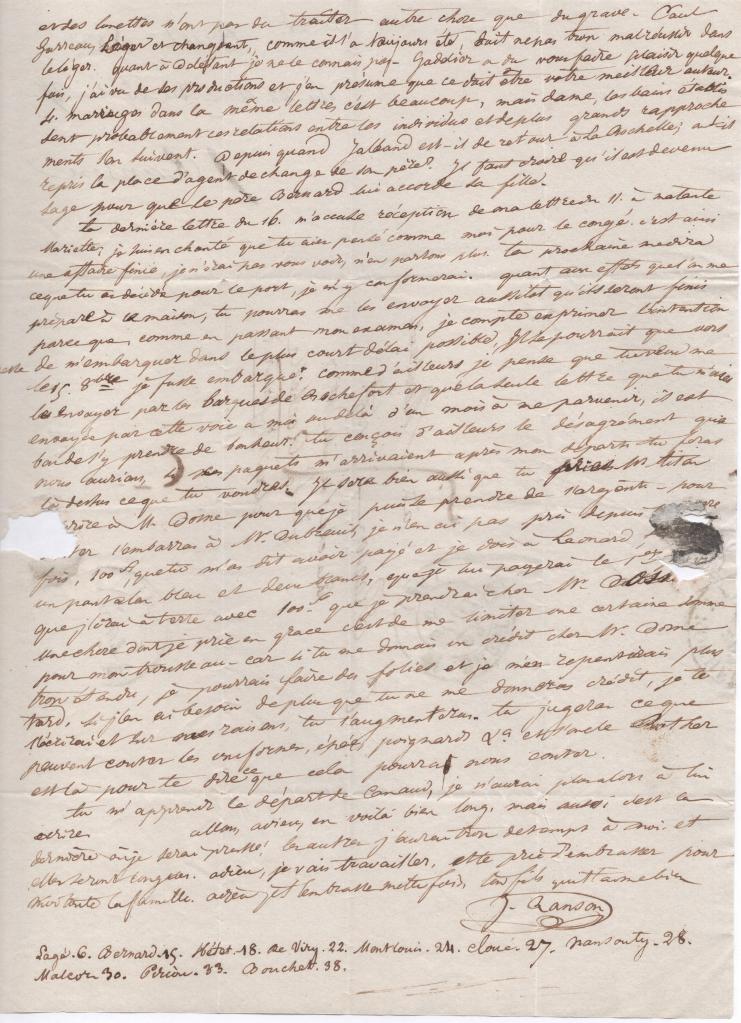 et des lunettes n'ont pas du traiter autre chose que du grave. Paul
Garreau, léger et changeant, comme il l'a toujours été, doit ne pas trop mal réussir dans
le léger. quant à Dolesant je ne le connais pas. Gaddior a du vous faire plaisir quelque
fois, j'ai vu de ses productions et j'en présume que ce doit être votre meilleur auteur.
4 mariages dans la même lettre, c'est beaucoup, mais dame, les bains établis
sent probablement ces relations entre les individus et de plus grands rapproche
ments s'en suivent. Depuis quand Jalband est-il de retour à La Rochelle; a-t-il
repris la place d'agent de change de son père? Il faut croire qu'il est devenu
sage pour que le père Bernard lui accorde sa fille.
ta dernière lettre du 16. m'accuse réception de ma lettre du 11. à ma tante
Mariette, je suis enchanté que tu aies pensé comme moi pour le congé. c'est ainsi
une affaire finie, je n'irai pas vous voir, n'en parlons plus. ta prochaine me dira
ce que tu as décidé pour le port, je m'y conformerai. quant aux effets que l'on me
prépare à la maison, tu pourras me les envoyer aussitôt qu'ils seront finis
parce que, comme en passant mon examen, je compte exprimer l'intention
de m'embarquer dans le plus court délai possible, il se pourrait que vers
le 15. 8bre je fusse embarqué. comme d'ailleurs je pense que tu veux me
les envoyer par les barques de Rochefort et que la seule lettre que tu m'aies
envoyée par cette voie a mis au delà d'un mois à me parvenir, il est
bon de s'y prendre de bonheur. tu conçois d'ailleurs le désagrément que
nous aurions, si ces paquets m'arrivaient après mon départ. tu feras
là dessus ce que tu voudras. Il sera bien aussi que tu pries Mr Titon
d'écrire à Mr. Dome pour que je puisse prendre de l'argent. pour
l'embarras à Mr. Dubreuil, je n'en ai pas pris depuis
fois, 100f, que tu m'as dit avoir payé et je dois à Leonard,
un pantalon bleu et deux blancs, que je lui payerai le 1er
que j'irai à terre avec 100f que je prendrai chez Mr. Dome
Une chose dont je prie en grace c'est de me limiter une certaine somme
pour mon trousseau. car si tu me donnais un crédit chez Mr. Dome
trop étendu, je pourrais faire des folies et je m'en repentirais plus
tard. si j'en ai besoin de plus que tu ne me donneras crédit, je te
l'écrirai et sur mes raisons, tu l'augmenteras. tu jugeras ce que
peuvent couter les uniformes, épée, poignard &a et l'oncle
est là pour te dire ce que cela pourra nous couter.
tu m'apprends le départ de Canaud, je n'aurai plus alors à lui
écrire allons, adieu, en voilà bien long, mais aussi c'est la
dernière où je serai pressé! les autres j'aurai trop de temps à moi et
elles seront longues. adieu, je vais travailler, et te prie d'embrasser pour
moi toute la famille. adieu je t'embrasse mille fois, ton fils qui t'aime bien
J. Ranson
Lagé. 6. Bernard. 15. Hétet. 18. de Viry. 22. Montlouis. 24. Cloué. 27. Nansouty. 28.
Malcor. 30. Périon. 33. Bouchet. 38.